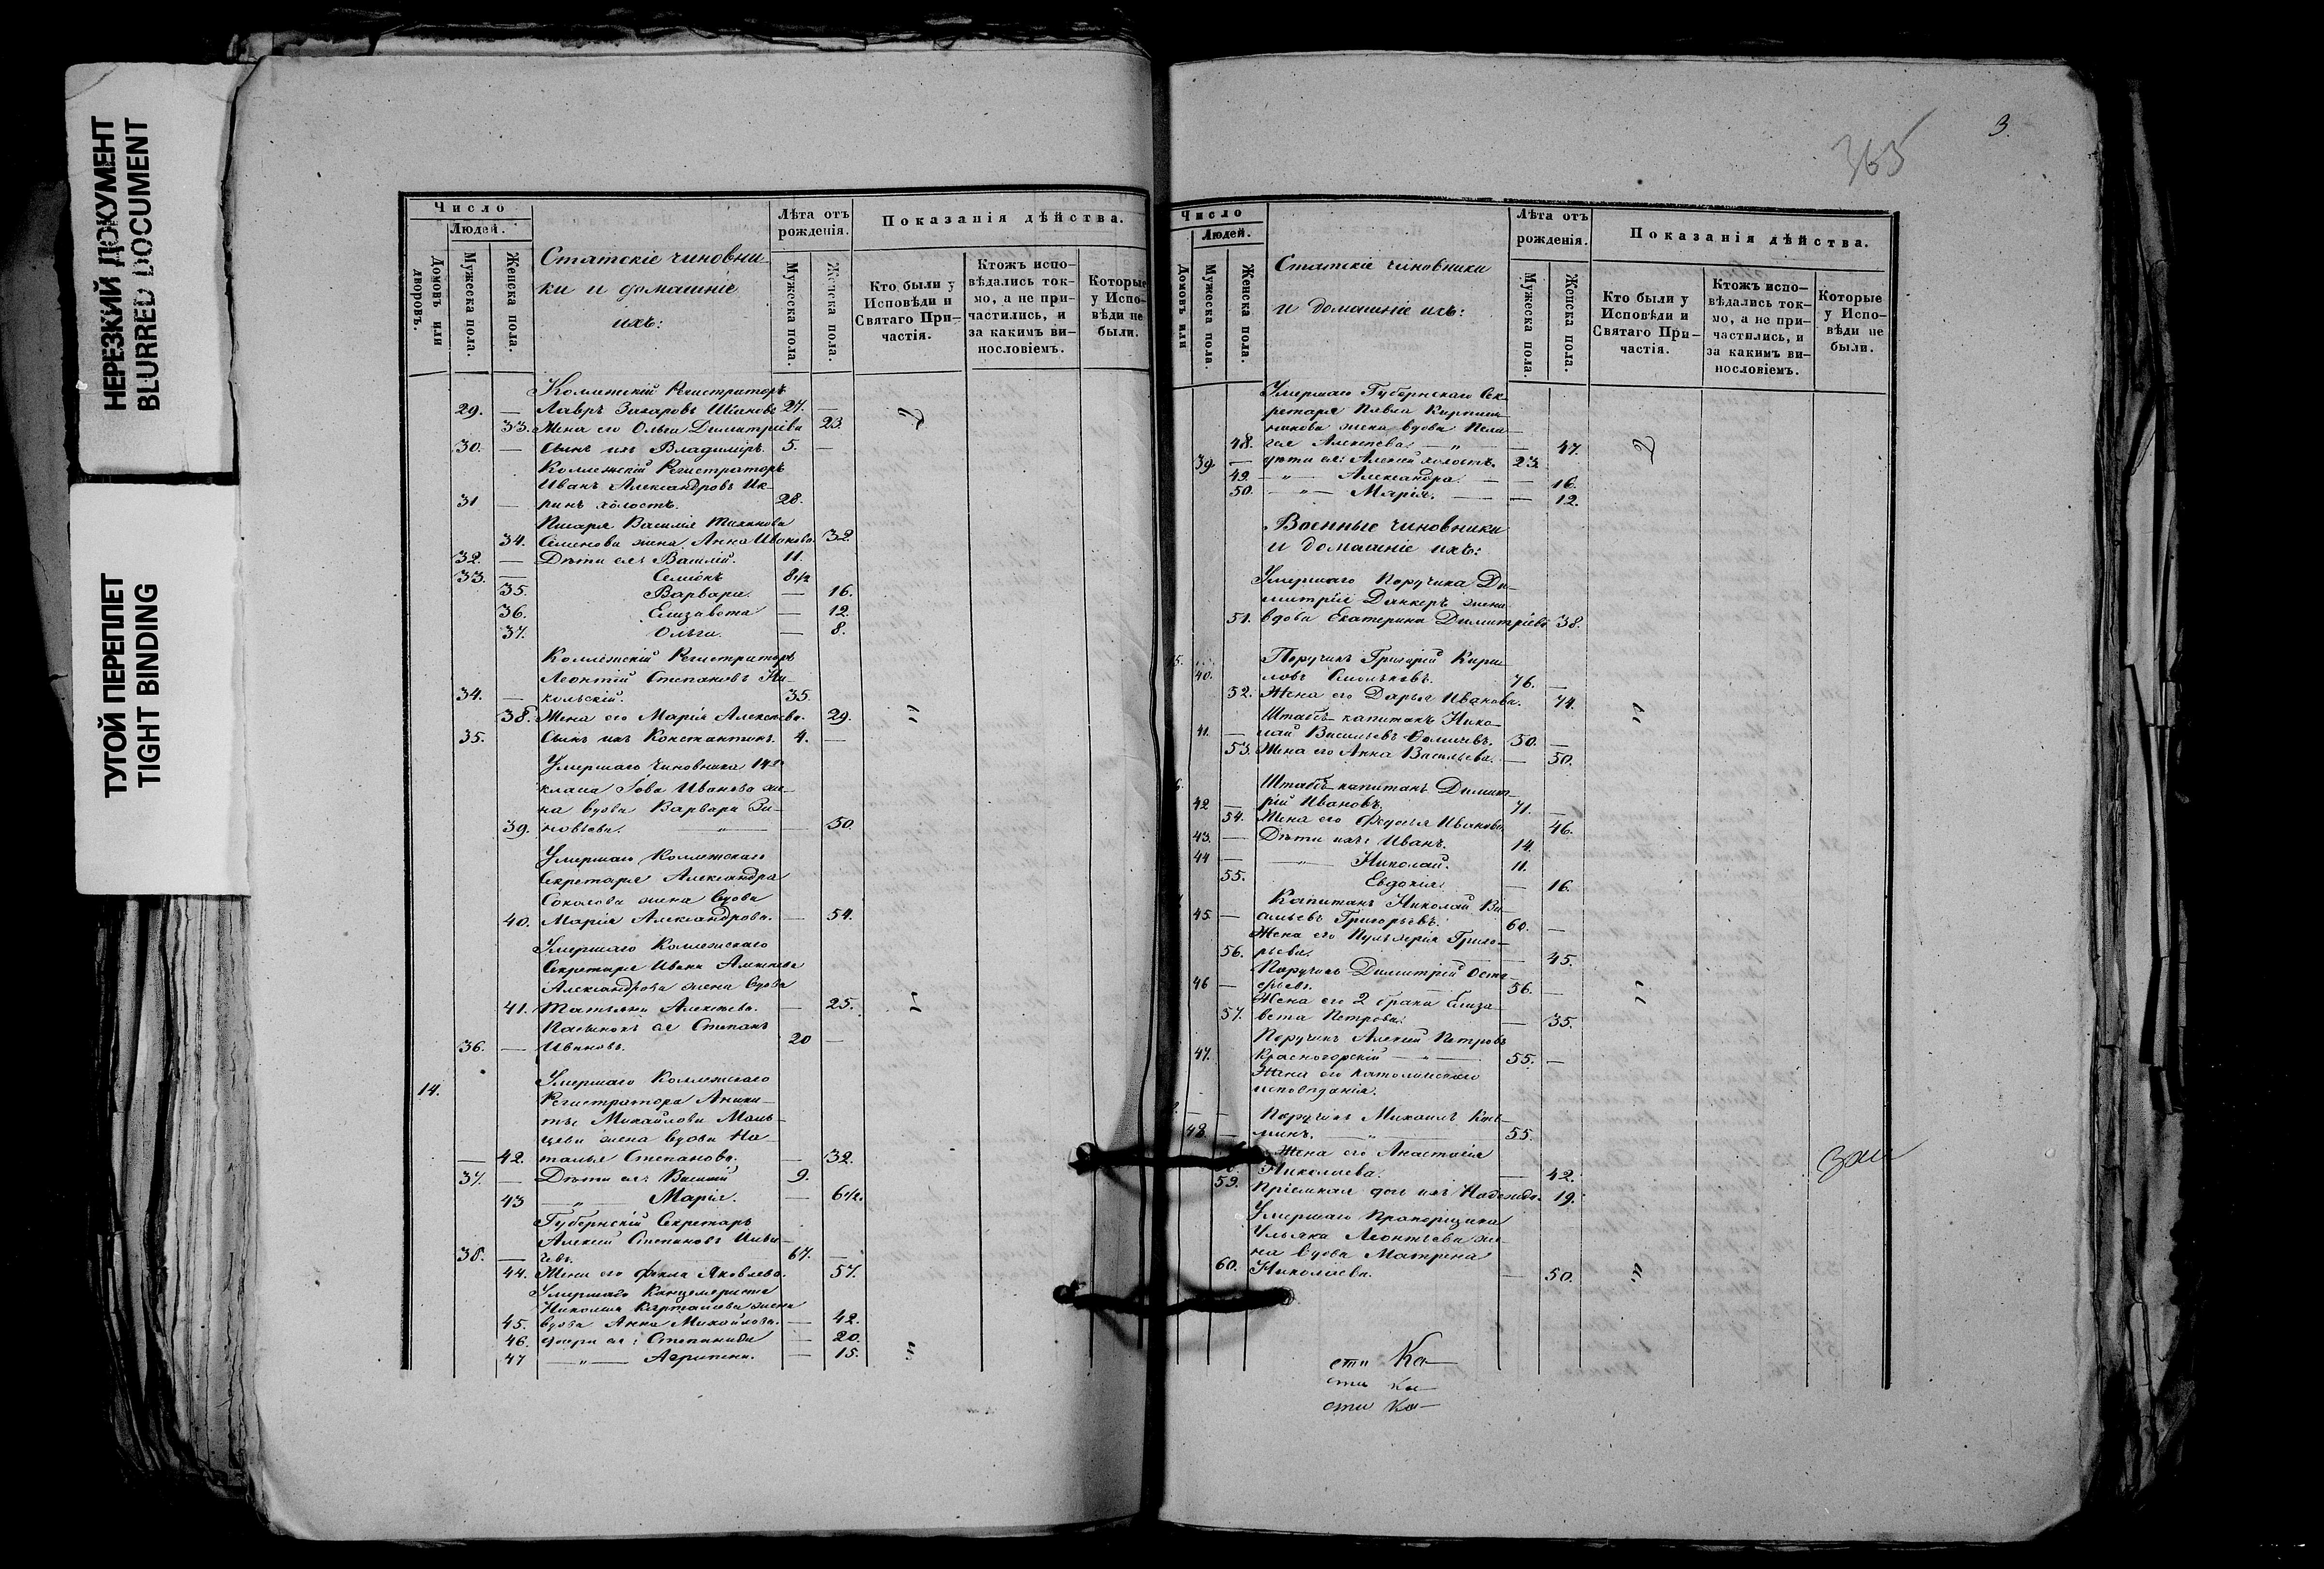 НЕРЕЗКИЙ ДОКУМЕНТ
BLURRED DOCUMENT
ТУГОЙ ПЕРЕПЛЕТ
TIGHT BINDING
Число
Людей.
Домовъ или дворовъ.
Мужеска пола.
Женска пола.
Статскіе чиновни-
ки и домашніе
ихъ:
Лѣта отъ рожденія.
Мужеска пола.
Женска пола.
Показанія дѣйства.
Кто были у Исповѣди и Святаго При-частія.
Ктожъ испо-вѣдались ток-мо, а не при-частились, и за какимъ ви-нословіемъ.
Которые у Испо-вѣди не были.
Коллежскій Регистраторъ
29. — Лавръ Захаровъ 27. —
33. Жена его Ольга Димитріева 23.
30. — Сынъ ихъ Владиміръ. 5. —
Коллежскій Регистраторъ
Иванъ Александровъ
31 — холостъ. 28.
Писаря Василія
34. Семенова жена Анна Иванова. 32.
32. — Дѣти ея: Василій. 11.
33. — Семіонъ 8 1/2
35. Варвара. — 16.
36. Елизавета — 12.
37. Ольга. — 8.
Коллежскій Регистраторъ
Леонтій Степановъ Ни-
34. — кольскій. 35.
38. Жена его Марія Алексѣева. 29.
35. Сынъ ихъ Константинъ. 4. —
Умершаго чиновника 14го
класса Іова Иванова же-
на вдова Варвара Зи-
39. новьева. — " — 50.
Умершаго Коллежскаго
Секретаря Александра
Соколова жена вдова
40. Марія Александрова. — 54.
Умершаго Коллежскаго
Секретаря Ивана Алексѣева
Александрова жена вдова
41. Татьяна Алексѣева. — 25.
Пасынокъ ея Степанъ
36. — Ивановъ. 20 —
Умершаго Коллежскаго
14. Регистратора Аники-
ты Михайлова Маль-
цева жена вдова На-
— 42. талья Степанова. — 32.
37. — Дѣти ея: Василій 9.
43 — " Марія. — 6 1/2.
Губернскій Секретарь
Алексій Степановъ
38. — 67. —
44. Жена его Фекла Яковлева. 57.
Умершаго Канцеляриста
Николая жена
45. вдова Анна Михайлова. — 42.
46. дочери ея: Степанида — 20.
47 — " — Агрипина. — 15.
365
3.
Число
Людей.
Домовъ или
Мужеска пола.
Женска пола.
Статскіе чиновники
и домашніе ихъ:
Лѣта отъ рожденія.
Мужеска пола.
Женска пола.
Показанія дѣйства.
Кто были у Исповѣди и Святаго При-частія.
Ктожъ испо-вѣдались ток-мо, а не при-частились, и за какимъ ви-нословіемъ.
Которые у Испо-вѣди не были.
Умершаго Губернскаго Сек-
ретаря Павла Кирпич-
никова жена вдова Пела-
48. гея Алексѣева. — " — 47.
39. — дѣти ея: Алексій холостъ. 23.
49. — " — Александра. — — 16.
50. — " — Марія. — — 12.
Военные чиновники
и домашніе ихъ:
Умершаго Поручика Ди-
митрія жена
51. вдова Екатерина Димитріева 38.
15. Поручикъ Григорій Кирил-
40. ловъ 76. —
52. Жена его Дарья Иванова. 74.
Штабсъ-капитанъ Нико-
41. — лай Васильевъ Фомичевъ. 50. —
53. Жена его Анна Васильева. — 50.
Штабсъ-капитанъ Димит-
42 — рій Ивановъ. 71. —
54. Жена его Федосья Иванова. 46.
43. — Дѣти ихъ: Иванъ. 14.
44 — — " — Николай. 11.
55. Евдокія. — 16.
Капитанъ Николай Ва-
45. — сильевъ Григорьевъ. 60. —
Жена его Пульхерія Григо-
56. рьева. — 45.
Поручикъ Димитрій
46 — 56. —
Жена его 2 брака Елиза-
57. вета Петрова. — 35.
Поручикъ Алексій Петровъ
47. Красногорскій — " — 55. —
Жена его католическаго
исповѣданія.
— — Поручикъ Михаилъ
48. — — " — 55.
Жена его Анастасія
Николаева. — 42.
59. Пріемная дочь ихъ Надежда. 19.
Умершаго Прапорщика
Ульяна Леонтьева же-
на вдова Матрена
60. Николаева. — 50.
сти Ка—
сти ка—
сти ка—